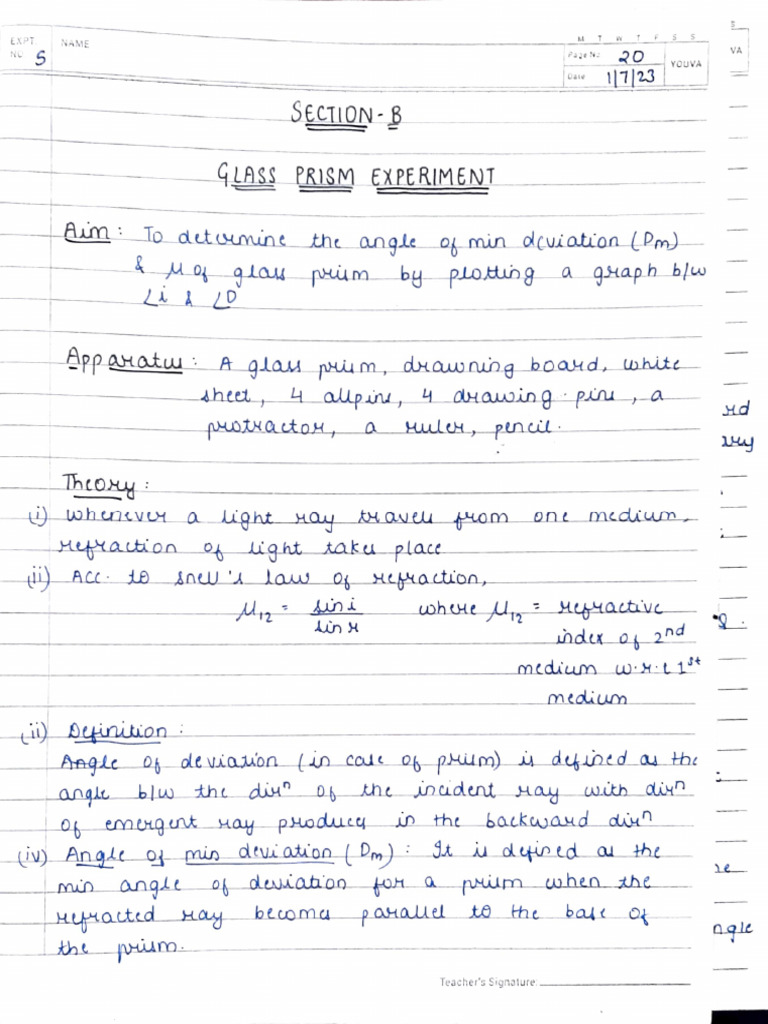 EXPT. NO. 5 NAME
M T W T F S S
Page No. 20
Date 1/7/23
YOUVA
SECTION-B
GLASS PRISM EXPERIMENT
Aim: To determine the angle of min deviation (Dm)
& μ of glass prism by plotting a graph b/w
∠i & ∠D
Apparatus: A glass prism, drawning board, white
sheet, 4 allpins, 4 drawing pins, a
protractor, a ruler, pencil.
Theory:
(i) Whenever a light ray travels from one medium,
refraction of light takes place
(ii) Acc. to snell's law of refraction,
μ12 = sin i / sin r where μ12 = refractive
index of 2nd
medium w.r.t 1st
medium
(ii) Definition:
Angle of deviation (in case of prism) is defined as the
angle b/w the dirn of the incident ray with dirn
of emergent ray produces in the backward dirn
(iv) Angle of min deviation (Dm): It is defined as the
min angle of deviation for a prism when the
refracted ray becomes parallel to the base of
the prism.
Teacher's Signature:
S
VA
rd
ngle